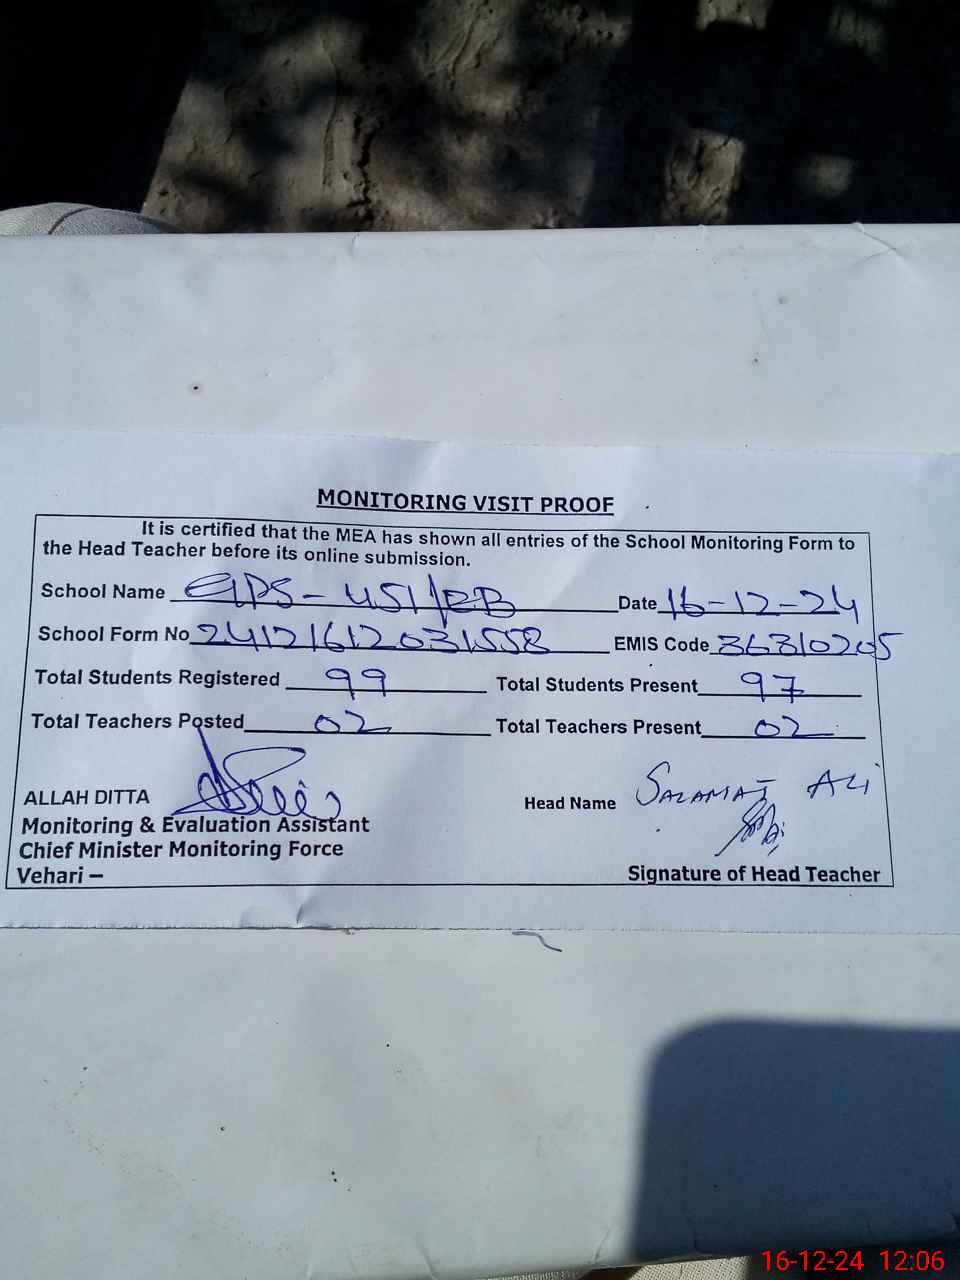 MONITORING VISIT PROOF
It is certified that the MEA has shown all entries of the School Monitoring Form to
the Head Teacher before its online submission.
School Name GPS-451/EB Date 16-12-24
School Form No 24121612031558 EMIS Code 36310205
Total Students Registered 99 Total Students Present 97
Total Teachers Posted 02 Total Teachers Present 02
ALLAH DITTA
Head Name SALAMAT ALI
Monitoring & Evaluation Assistant
Chief Minister Monitoring Force
Vehari –
Signature of Head Teacher
16-12-24 12:06